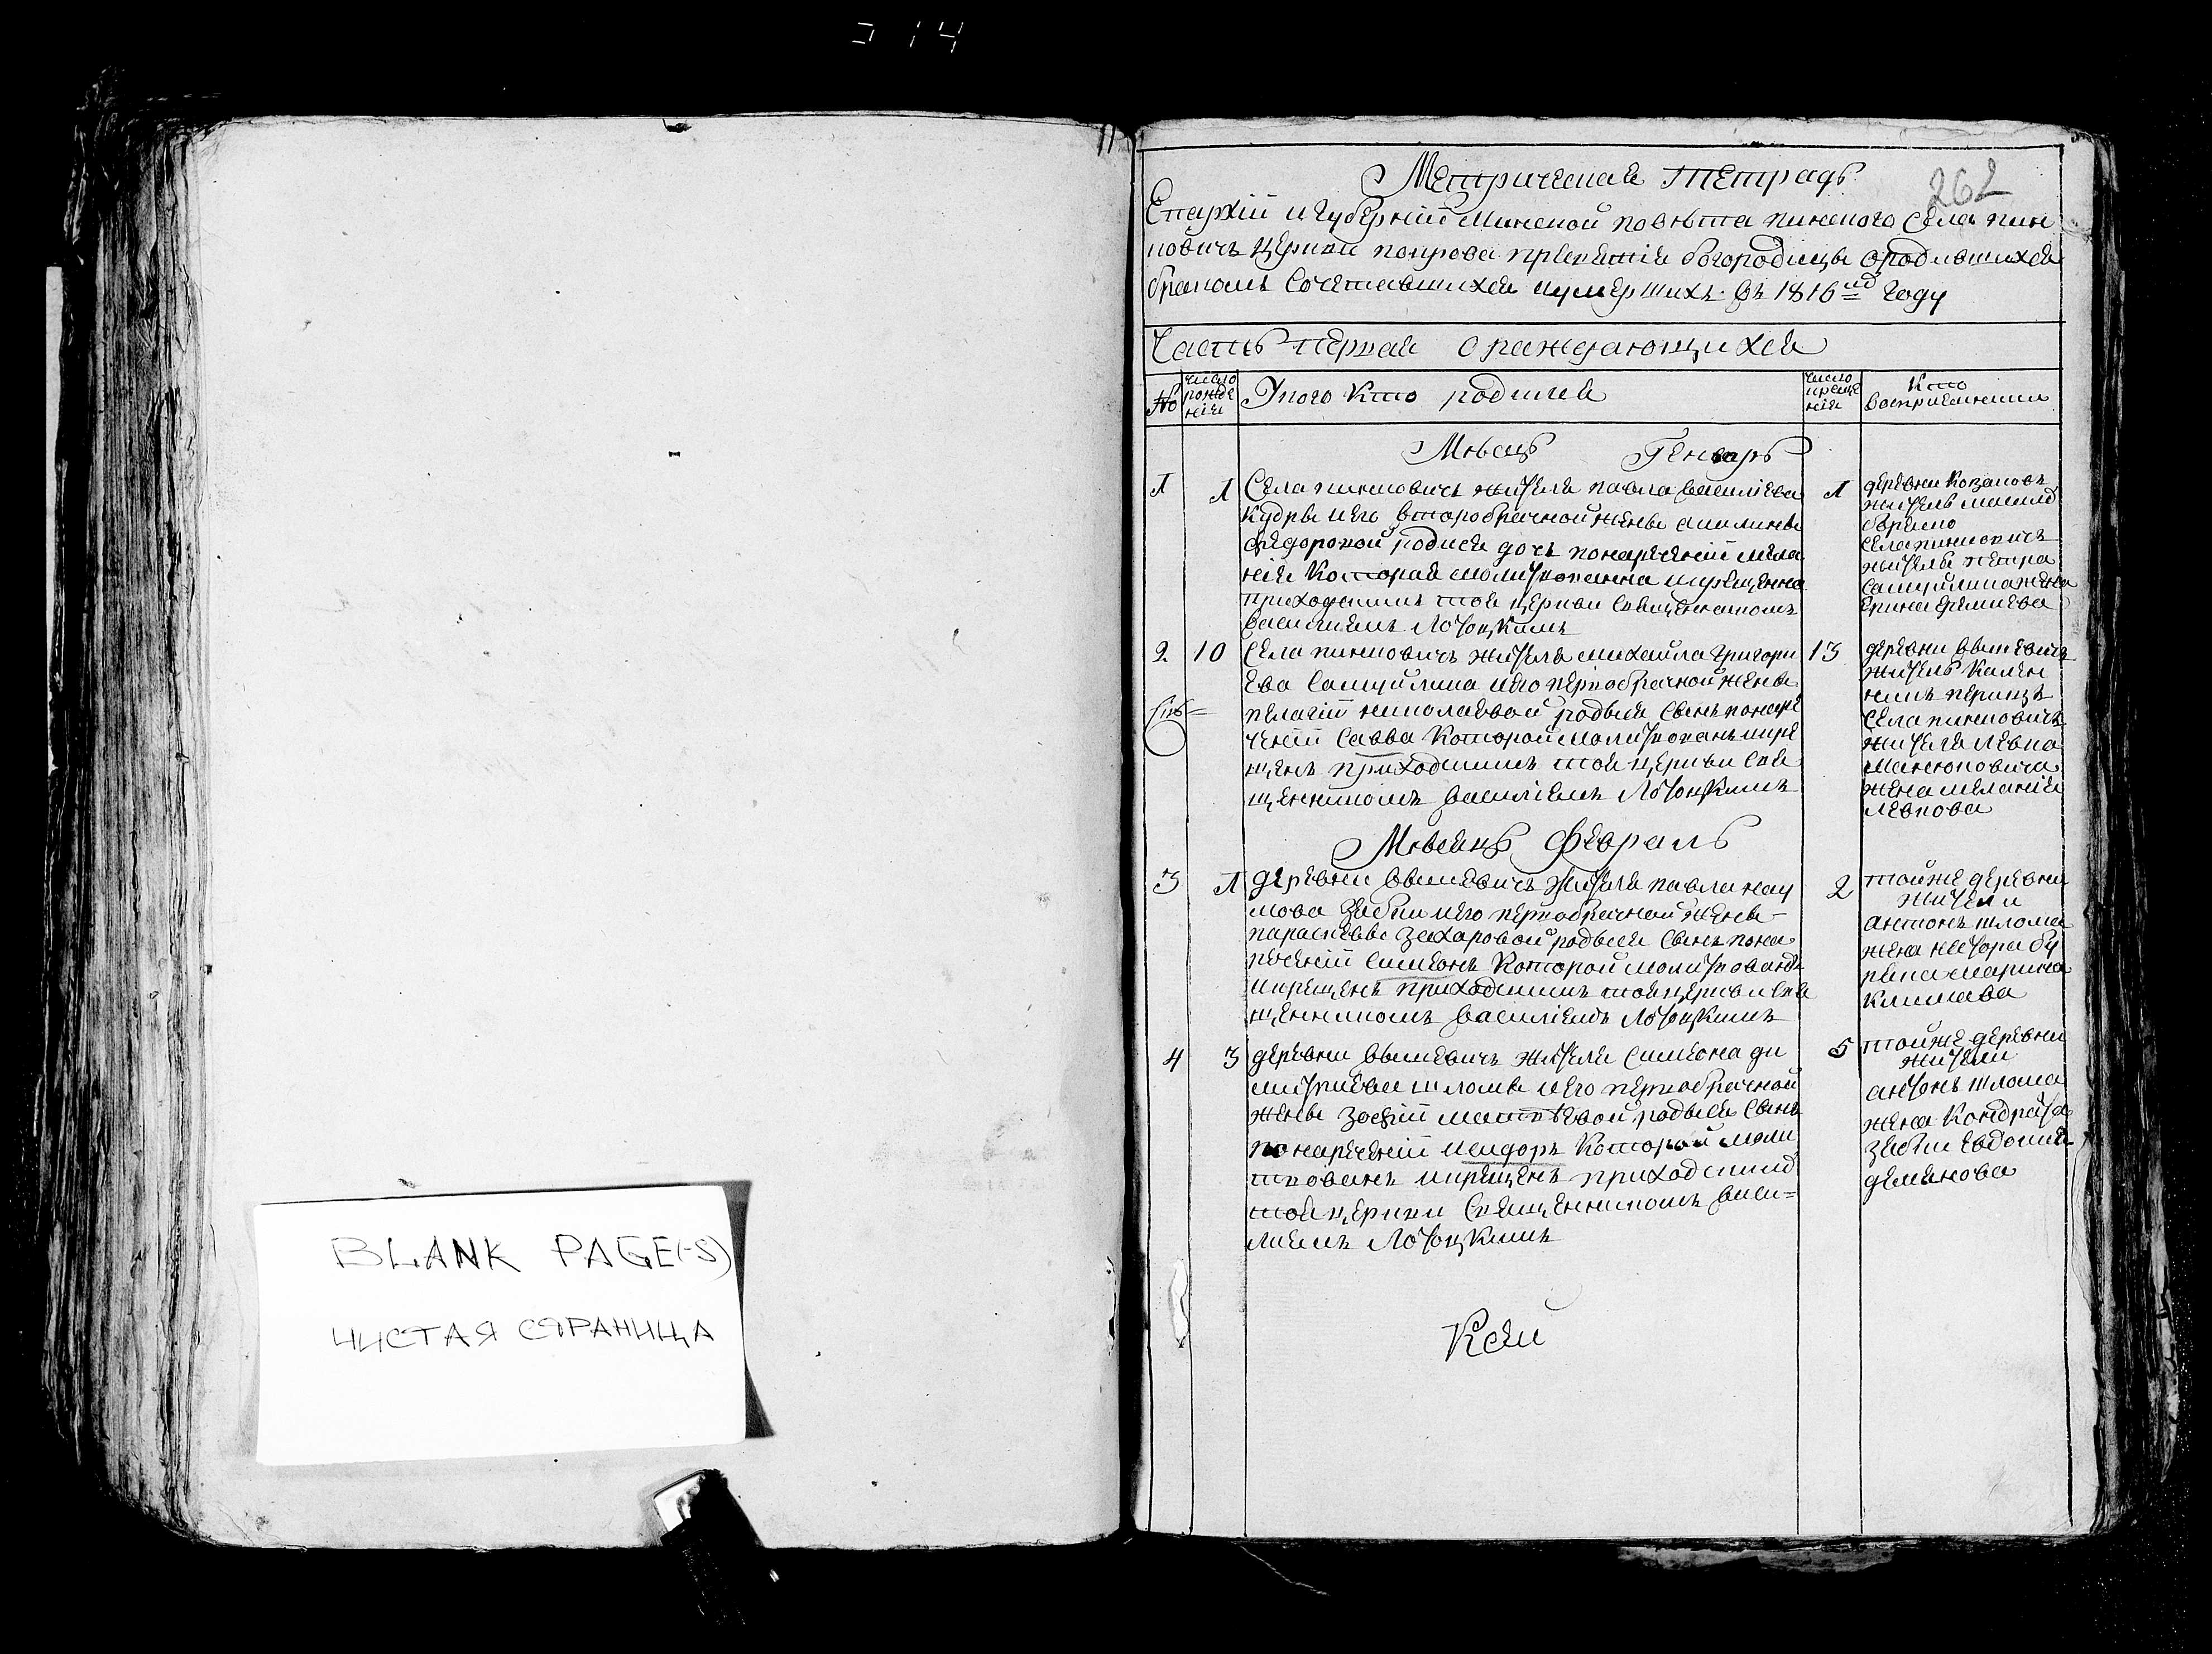 314
BLANK PAGE(-S)
ЧИСТАЯ СТРАНИЦА
262
Метрическая тетрадь
Епархіи и губерніи Минской повѣта пинского Села пин
ковичъ церкви покрова пресвятія богородицы ородившихся
бракомъ Сочетавшихся иумершихъ Въ 1816мъ году
Часть первая ораждающихся
№
число рожде нія
Укого Кто родился
число креще нія
Кто воспріемники
Мѣсецъ Генварь
1 1 Села пинковичъ жителя павла василіева
Кудры иего второбрачной жены
федоровой родися дочъ понареченіи мела
нія Которая молитвованна икрещенна
приходскимъ тоя церкви священникомъ
василіемъ Лотоцкимъ
1
деревни
житель
Села пинковичъ
жителя петра
Самуйлика жена
2. 10 Села пинковичъ жителя михайла григори
ева Самуйлика иего первобрачной жены
пелагіи николаевой родыся Сынъ понаре
ченіи Савва Которой молитвованъ икре
щенъ приходскимъ тоя церкви Свя
щенникомъ василіемъ Лотоцкимъ
13
деревни вышевичъ
житель
Села пинковичъ
жителя левка
жена меланія
левкова
Мѣсецъ Февраль
3 1 деревни вышевичъ жителя павла нау
мова Зябки иего первобрачной жены
параскевы захаровой родыся Сынъ пона
реченіи Симеонъ Которой молитвованъ
икрещенъ приходскимъ тоя церкви Свя
щенникомъ василіемъ Лотоцкимъ
2
тойже деревни
жители
антонъ шлома
жена нестора
марина
Климова
4 3 деревни вышевичъ жителя Симеона ди
митріева шломы иего первобрачной
жены зофіи матвѣевой родыся Сынъ
понареченіи исидоръ Которой моли
твованъ икрещенъ приходскимъ
тоя церкви Священникомъ васи=
ліемъ Лотоцкимъ
5
тойже деревни
жители
антонъ шлома
жена Кондрата
зябки евдокия
демянова
Ксей